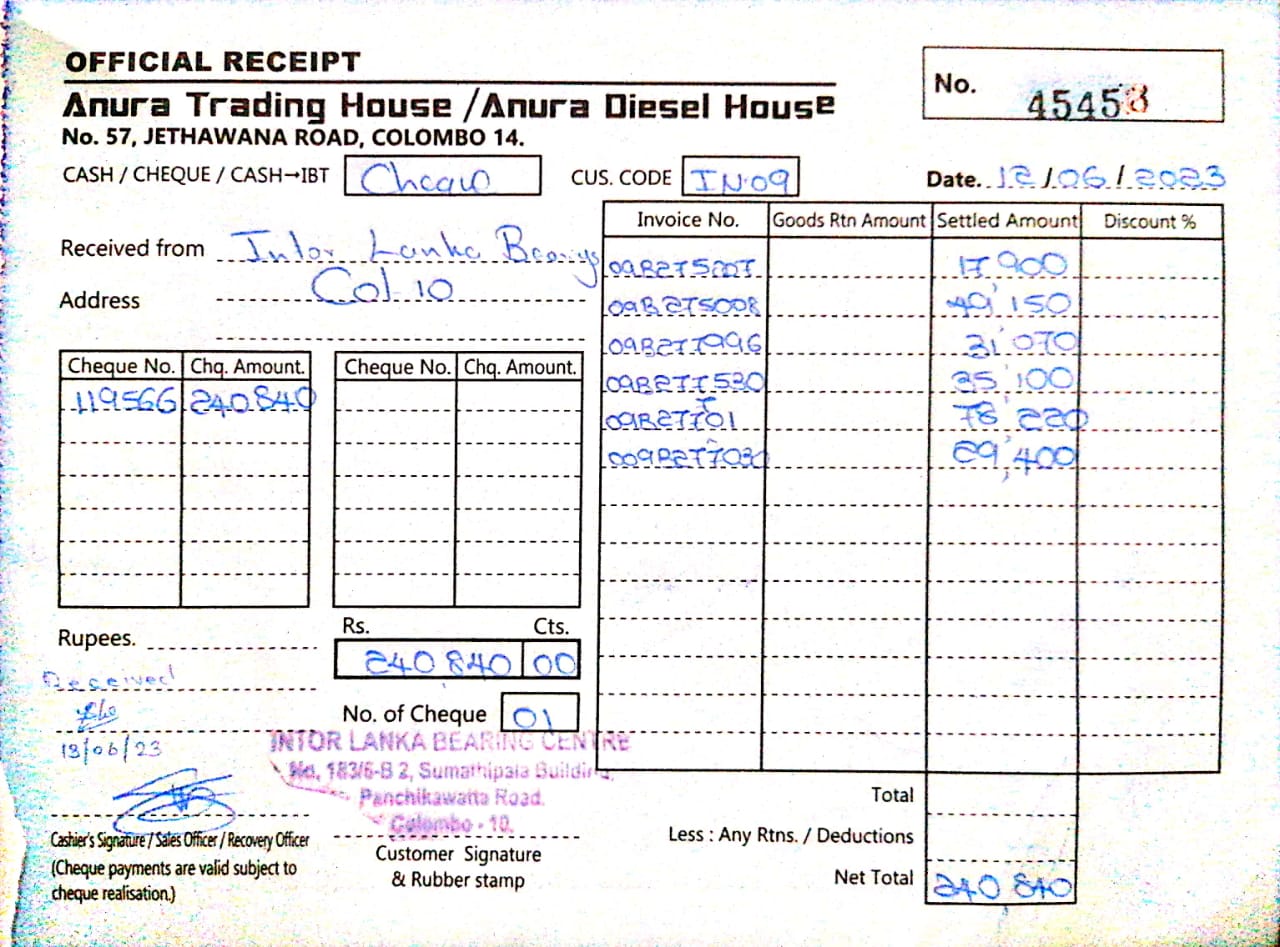 OFFICIAL RECEIPT
Anura Trading House /Anura Diesel House
No. 57, JETHAWANA ROAD, COLOMBO 14.
No. 45453
CASH / CHEQUE / CASH→IBT Cheque
CUS. CODE IN09
Date. 12/06/2023
Received from Intor Lanka Bearings
Address Col-10
Cheque No. Chq. Amount. Cheque No. Chq. Amount.
119566 240 840
Invoice No. Goods Rtn Amount Settled Amount Discount %
17'900
09B275008 49'150
09B277996 31'070
09B277530 35'100
09B27701 78'220
009B277030 29'400
Rupees.
Rs. Cts.
240 840 00
No. of Cheque 01
Received
13/06/23
INTOR LANKA BEARING CENTRE
No. 183/6-B 2, Sumathipala Building,
Panchikawatta Road.
Colombo - 10.
Cashier's Signature / Sales Officer / Recovery Officer
(Cheque payments are valid subject to
cheque realisation.)
Customer Signature
& Rubber stamp
Total
Less : Any Rtns. / Deductions
Net Total 240,840